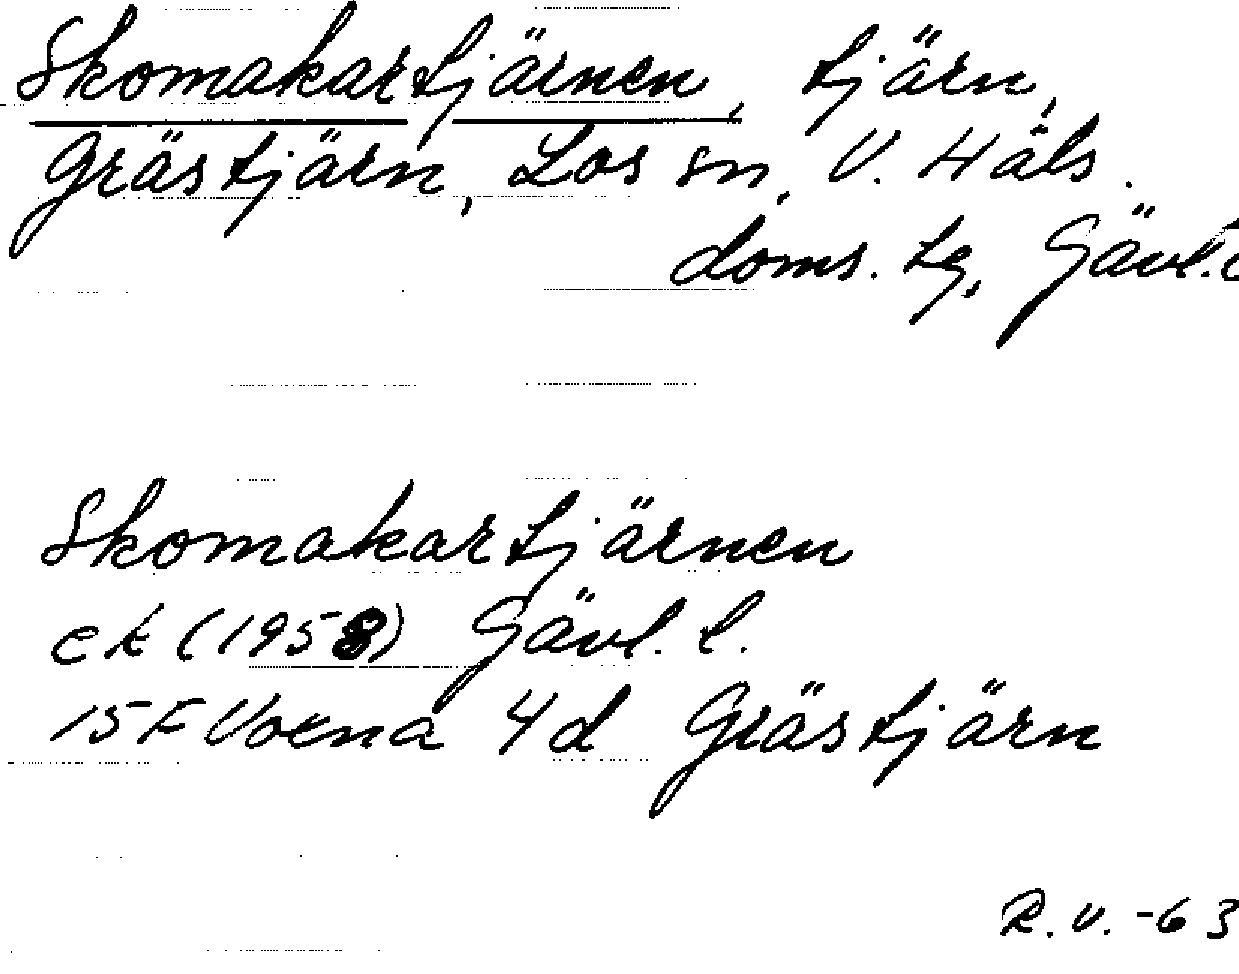 Skomakartjärnen, tjärn,
Grästjärn, Los sn, V. Häls.
doms. tg, Gävl. l
Skomakartjärnen
ek (1958) Gävl. l.
15 F Voxna 4 d Grästjärn
R.V. -63